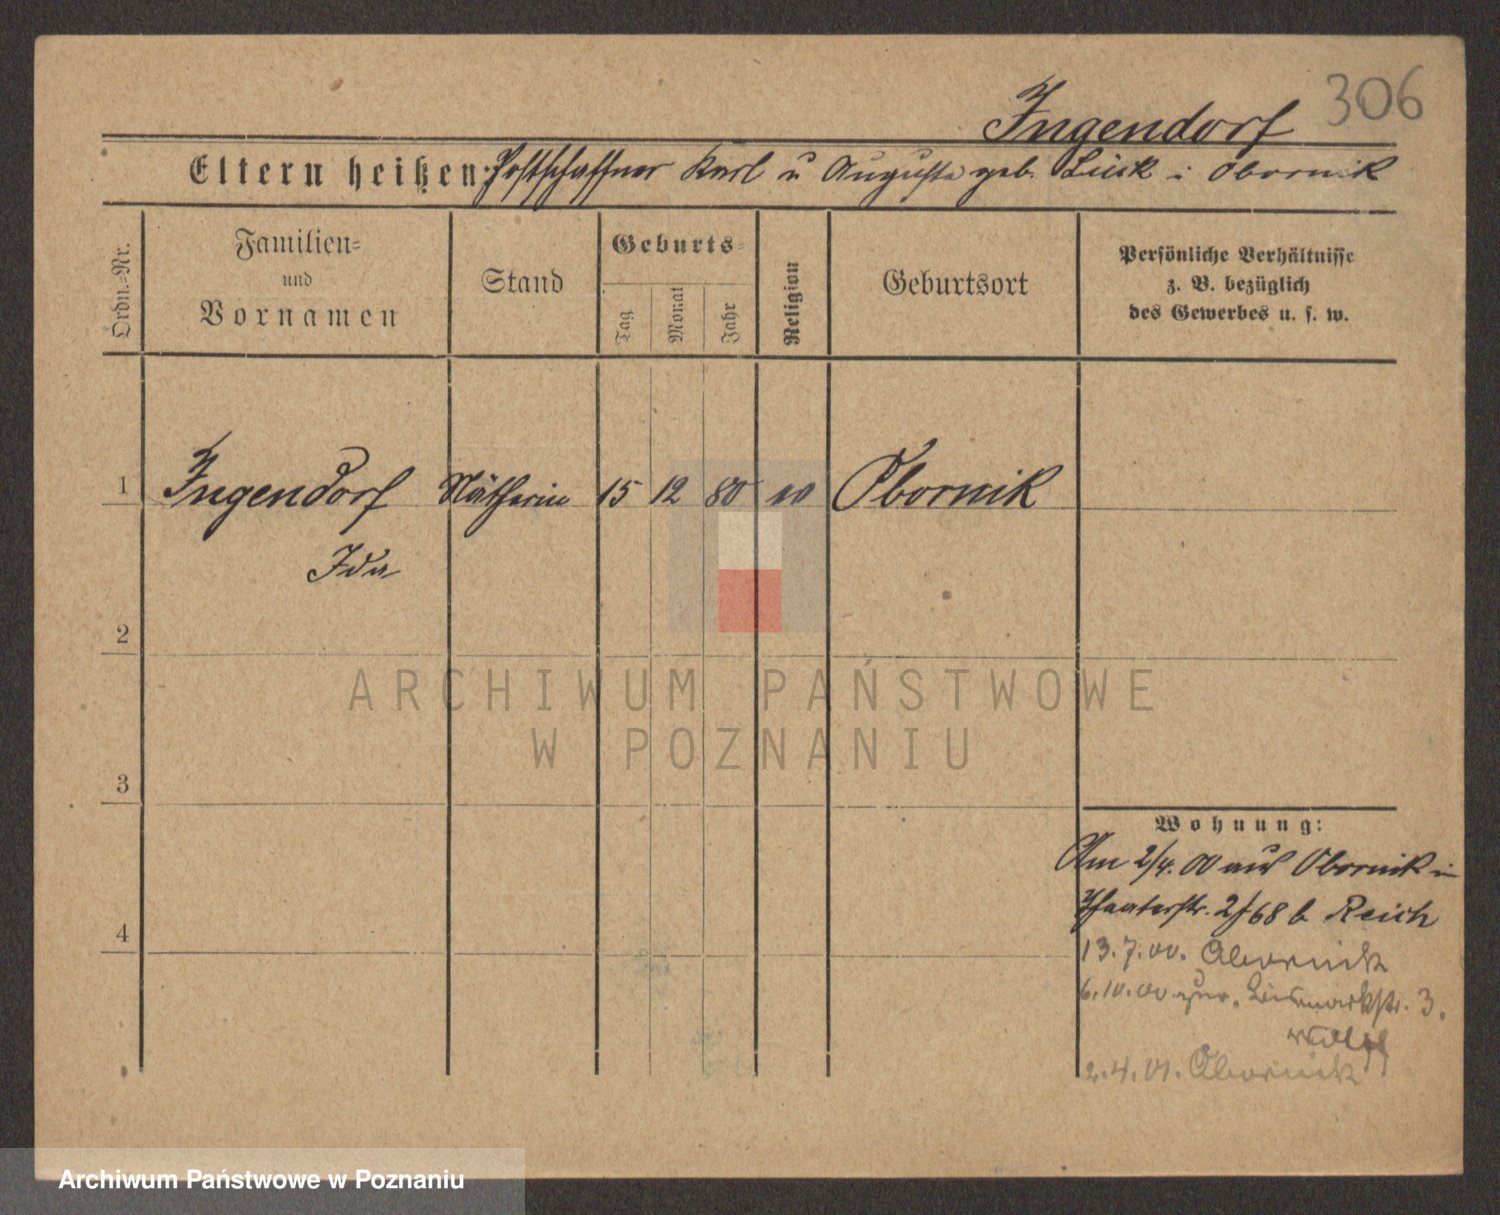 306
Ingendorf
Eltern heißen: Postschaffner Karl u Auguste geb. Lück i Obornik
Ordn.-Nr.
Familien-
und
Vornamen
Stand
Geburts-
Tag
Monat
Jahr
Religion
Geburtsort
Persönliche Verhältnisse
z. B. bezüglich
des Gewerbes u. s. w.
1 Ingendorf Nätherin 15 12 80 Obornik
Ida
2
ARCHIWUM PAŃSTWOWE
W POZNANIU
3
Wohnung:
Am 2/4.00 aus Obornik in
2/68 b Reich
4
13.7.00. Obornik
6.10.00 zur. Bismarkstr. 3.
Wolff
2.4.01. Obornik
Archiwum Państwowe w Poznaniu